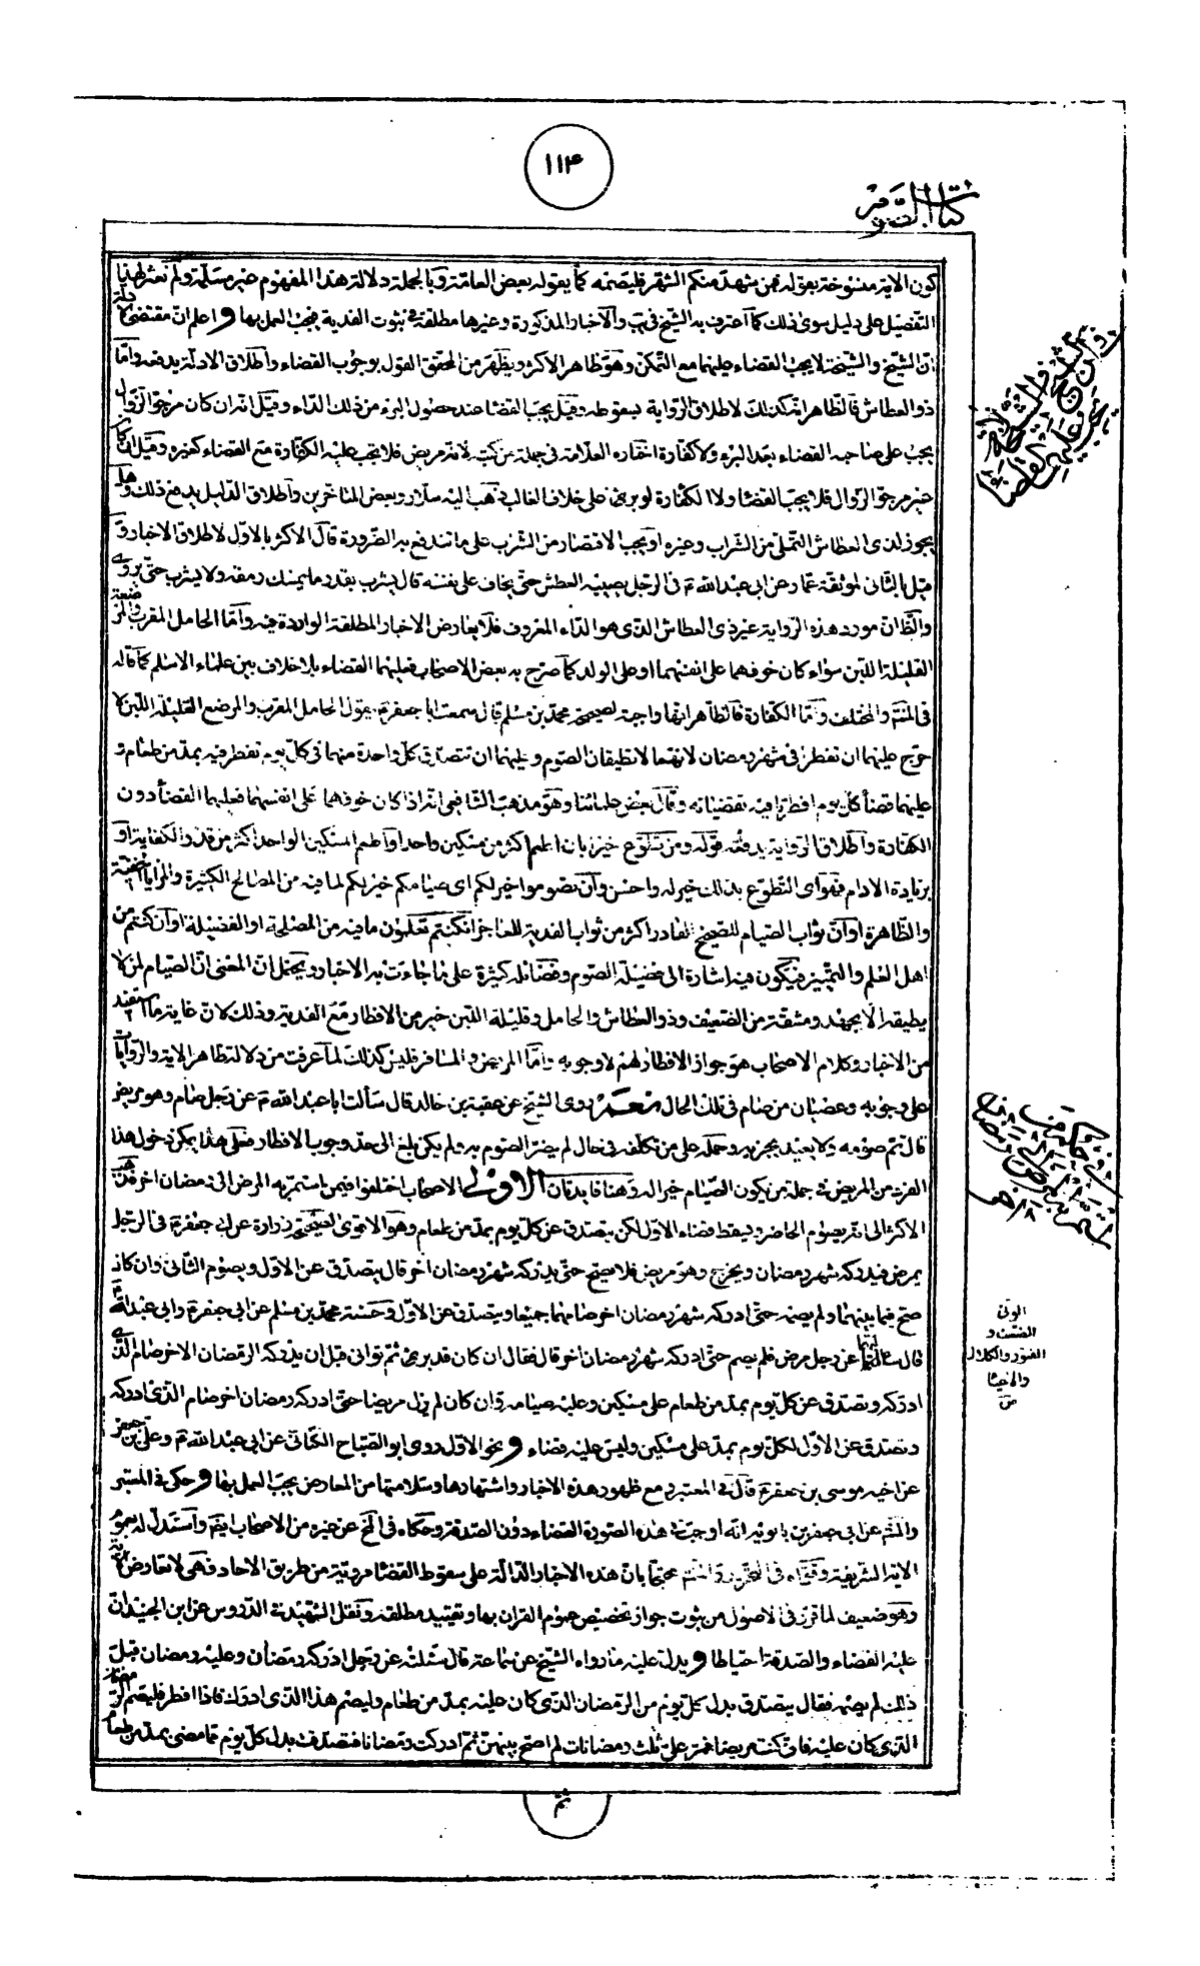 ١١٤
كتاب الصوم
كون الاية منسوخة بقوله فمن شهد منكم الشهر فليصمه كما يقوله بعض العامة وبالجملة دلالة هذا المفهوم غير مسلمة ولم نعثر لهذا
التفصيل على دليل سوى ذلك كما اعترف به الشيخ في يب والاخبار المذكورة وغيرها مطلقة في ثبوت الفدية فيجب العمل بها واعلم ان مقتضى الادلة
ان الشيخ والشيخة لا يجب القضاء عليهما مع التمكن وهو ظاهر الاكثر ويظهر من المحقق القول بوجوب القضاء واطلاق الادلة يدفعه واما
ذو العطاش فالظاهر انه كذلك لاطلاق الرواية بسقوطه وقيل يجب القضاء عند حصول البرء من ذلك الداء وقيل انه ان كان مرجو الزوال
يجب على صاحبه القضاء بعد البرء ولا كفارة اختاره العلامة في جملة من كتبه لانه مريض فلا يجب عليه الكفارة مع القضاء كغيره وقيل ان كان
غير مرجو الزوال فلا يجب القضاء ولا الكفارة لو برئ على خلاف الغالب ذهب اليه سلار وبعض المتاخرين واطلاق الدليل يدفع ذلك وهل
يجوز لذي العطاش التملي من الشراب وغيره او يجب الاقتصار من الشرب على ما تندفع به الضرورة قال الاكثر بالاول لاطلاق الاخبار و
قيل بالثاني لموثقة عمار عن ابي عبد الله ع في الرجل يصيبه العطش حتى يخاف على نفسه قال يشرب بقدر ما يمسك رمقه ولا يشرب حتى يروى
والظ ان مورد هذه الرواية غير ذي العطاش الذي هو الداء المعروف فلا يعارض الاخبار المطلقة الواردة فيه واما الحامل المقرب والمرضعة
القليلة اللبن سواء كان خوفهما على انفسهما او على الولد كما صرح به بعض الاصحاب فعليهما القضاء بلا خلاف بين علماء الاسلام كما قاله
في المنتهى والمختلف واما الكفارة فالظاهر انها واجبة لصحيحة محمد بن مسلم قال سمعت ابا جعفر ع يقول الحامل المقرب والمرضع القليلة اللبن لا
حرج عليهما ان تفطرا في شهر رمضان لانهما لا تطيقان الصوم وعليهما ان تتصدق كل واحدة منهما في كل يوم تفطر فيه بمد من طعام و
عليهما قضاء كل يوم افطرتا فيه تقضيانه وقال بعض علمائنا وهو مذهب الشافعي انه اذا كان خوفهما على انفسهما فعليهما القضاء دون
الكفارة واطلاق الرواية يدفعه قوله ومن تطوع خيرا بان اطعم اكثر من مسكين واحد او اطعم المسكين الواحد اكثر من قدر الكفاية او
بزيادة الادام فهو اى التطوع بذلك خير له واحسن وان تصوموا خير لكم اى صيامكم خير لكم لما فيه من المصالح الكثيرة والمزايا الخفية
والظاهرة او ان ثواب الصيام للصحيح القادر اكثر من ثواب الفدية للعاجز ان كنتم تعلمون ما فيه من المصلحة او الفضيلة او ان كنتم من
اهل العلم والتميز فيكون فيه اشارة الى فضيلة الصوم وفضائله كثيرة على ما جاءت به الاخبار ويحتمل ان المعنى ان الصيام لمن لا
يطيقه الا بجهد ومشقة من الضعيف وذو العطاش والحامل وقليلة اللبن خير من الافطار مع الفدية وذلك لان غاية ما استفيد
من الاخبار وكلام الاصحاب هو جواز الافطار لهم لا وجوبه واما المريض والمسافر فليس كذلك لما عرفت من دلالة ظاهر الاية والروايات
على وجوبه وعصيان من صام في تلك الحال نعم روى الشيخ عن عقبة بن خالد قال سألت ابا عبد الله ع عن رجل صام وهو مريض
قال تم صومه ولا يعيد يجزيه وحمله على من تكلف في حال لم يضر الصوم به ولم يكن بلغ الى حد وجوب الافطار فعلى هذا يمكن دخول هذا
الفرد من المريض في جملة من يكون الصيام خير اله وهنا فايدتان الاولى الاصحاب اختلفوا فيمن استمر به المرض الى رمضان اخر فذهب
الاكثر الى انه يصوم الحاضر ويسقط قضاء الاول لكن يتصدق عن كل يوم بمد من طعام وهو الاقوى لصحيحة زرارة عن ابي جعفر ع في الرجل
يمرض فيدركه شهر رمضان ويخرج وهو مريض فلا يصح حتى يدركه شهر رمضان اخر قال يتصدق عن الاول ويصوم الثاني وان كان
صح فيما بينهما ولم يصم حتى ادركه شهر رمضان اخر صامهما جميعا ويتصدق عن الاول وحسنة محمد بن مسلم عن ابي جعفر ع وابي عبد الله ع
قال سالتهما عن رجل مرض فلم يصم حتى ادركه شهر رمضان اخر قال فقال ان كان قد برئ ثم توانى قبل ان يدركه الرمضان الاخر صام الذي
ادركه وتصدق عن كل يوم بمد من طعام على مسكين وعليه صيامه وان كان لم يزل مريضا حتى ادركه رمضان اخر صام الذي ادركه
وتصدق عن الاول لكل يوم بمد على مسكين وليس عليه قضاء ونحو الاول روى ابو الصباح الكناني عن ابي عبد الله ع وعلى بن جعفر
عن اخيه موسى بن جعفر ع قال في المعتبر ومع ظهور هذه الاخبار واشتهارها وسلامتها من المعارض يجب العمل بها وحكى في المعتبر
والمنتهى عن ابي جعفر بن بابويه انه اوجب في هذه الصورة القضاء دون الصدقة وحكاه في الخ عن غيره من الاصحاب ايضا واستدل له بعموم
الاية الشريفة وقواه في التحرير والمنتهى محتجا بان هذه الاخبار الدالة على سقوط القضاء مروية من طريق الاحاد فهي لا تعارض الاية
وهو ضعيف لما قرر في الاصول من ثبوت جواز تخصيص عموم القران بها وتقييد مطلقه ونقل الشهيد في الدروس عن ابن الجنيد ان
عليه القضاء والصدقة احتياطا ويدل عليه ما رواه الشيخ عن سماعة قال سئلته عن رجل ادركه رمضان وعليه رمضان قبل
ذلك لم يصمه فقال يتصدق بدل كل يوم من الرمضان الذي كان عليه بمد من طعام وليصم هذا الذي ادرك فاذا افطر فليصم رمضان
الذي كان عليه فاني كنت مريضا فمر على ثلث رمضانات لم اصح بينهن ثم ادركت رمضانا فتصدقت بدل كل يوم مما مضى بمد من طعام
ثم
الونى
الضعف و
الفتور والكلال
والاعياء
ص